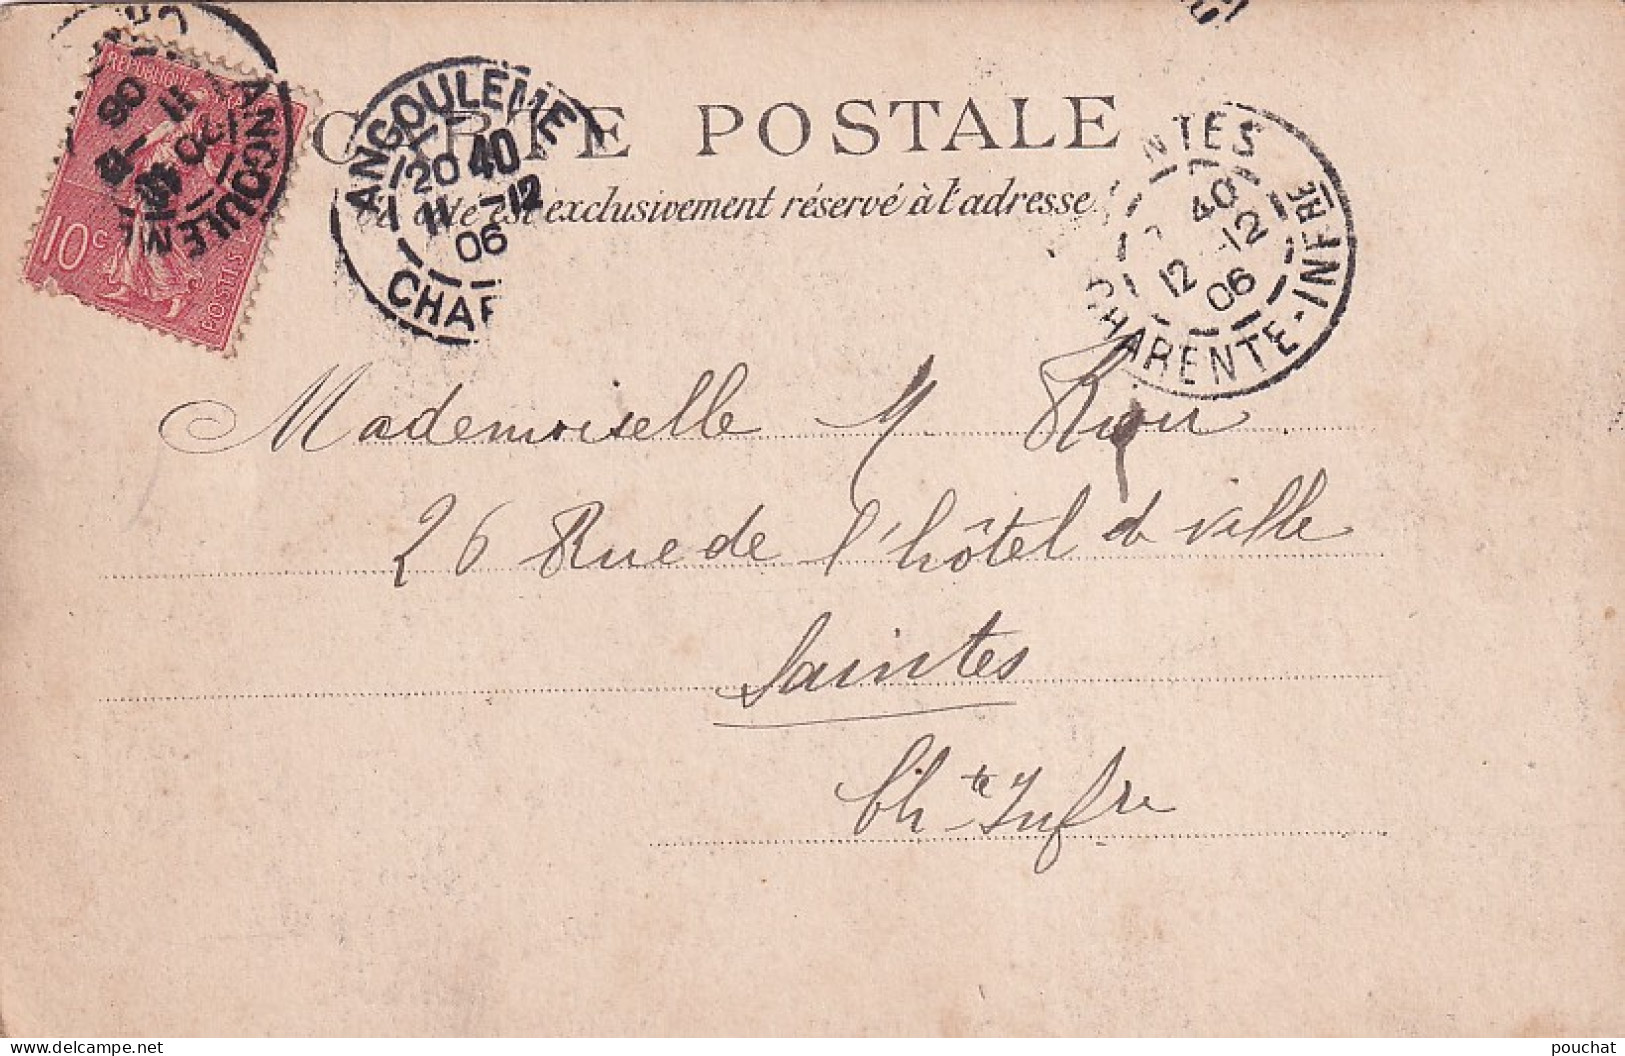 REPUBLIQUE FRANÇAISE
10c POSTES
ANGOULEME
20 40
11 -12
06
CHAR
ANGOULEME
20 40
11 -12
06
CHA
CARTE POSTALE
Ce côté est exclusivement réservé à l'adresse.
NTES
40
12 -12
06
CHARENTE-INFRE
Mademoiselle M
26 Rue de l'hôtel de ville
Saintes
Ch te Infre
pouchat